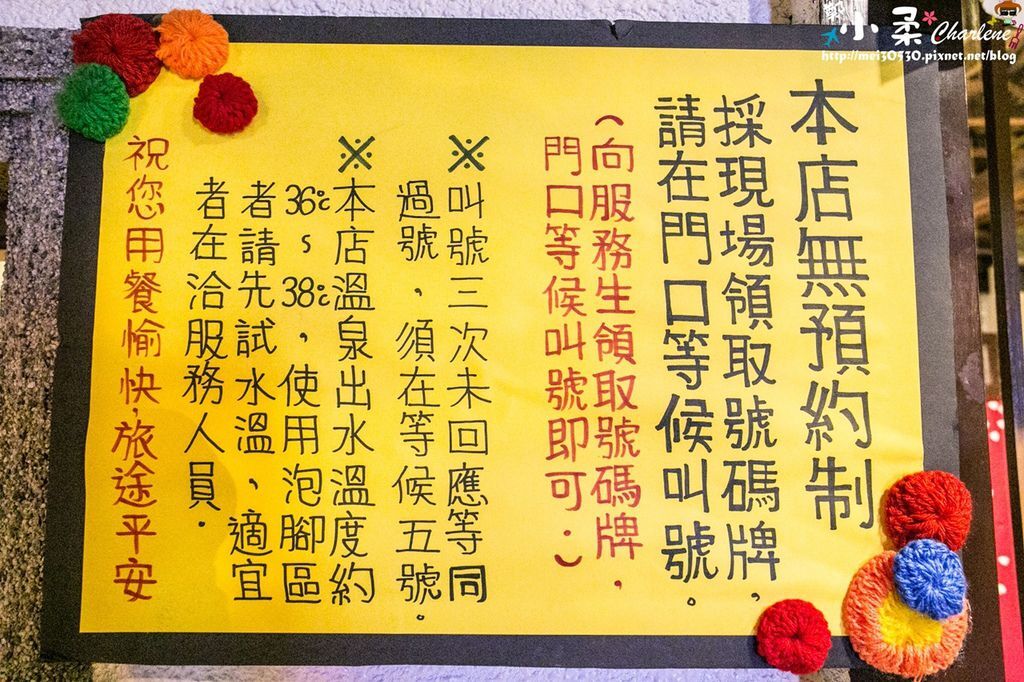 鄭小柔 Charlene
http://mei30530.pixnet.net/blog
本店無預約制
採現場領取號碼牌，
請在門口等候叫號。
（向服務生領取號碼牌，
門口等候叫號即可.）
※叫號三次未回應等同
過號，須在等候五號。
※本店溫泉出水溫度約
36℃ ~ 38℃，使用泡腳區
者請先試水溫、適宜
者在洽服務人員.
祝您用餐愉快,旅途平安